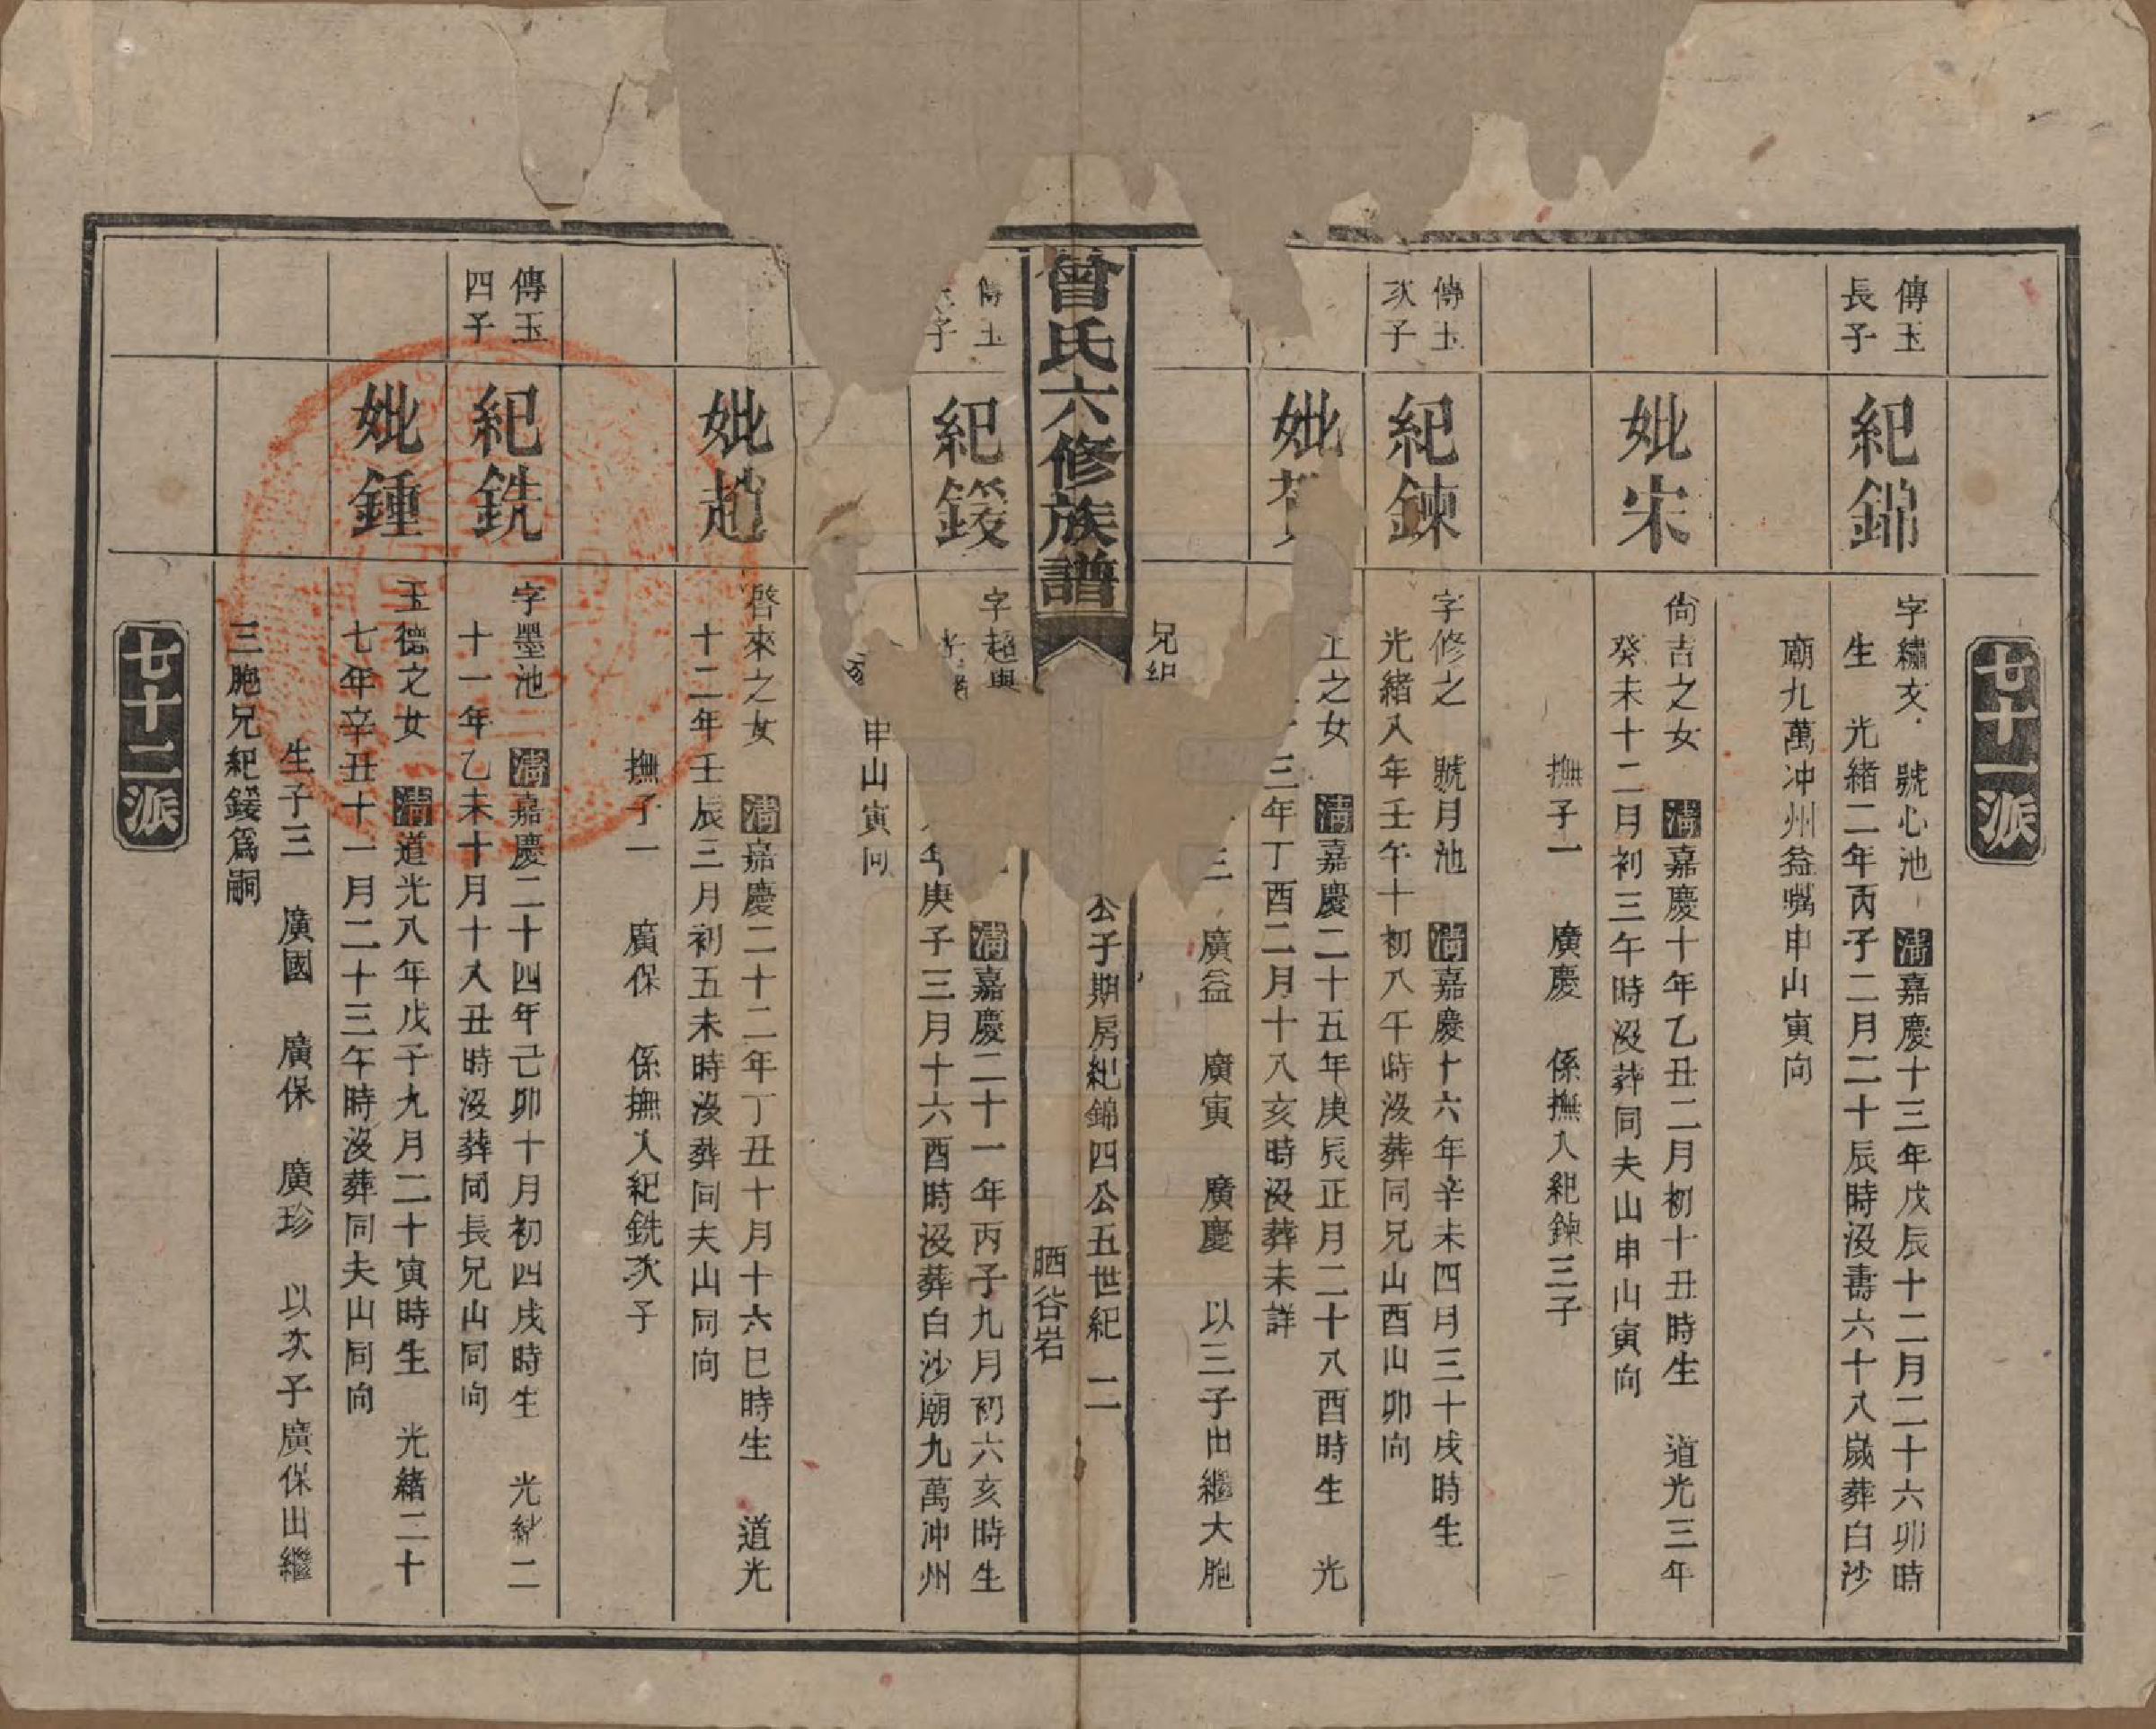 七十一派
傳玉
長子
紀錦
字繡文 號心池 清嘉慶十三年戊辰十二月二十六卯時
生 光緒二年丙子二月二十辰時沒壽六十八歲葬白沙
廟九萬冲州益嘴申山寅向
妣宋
尙吉之女 清嘉慶十年乙丑二月初十丑時生 道光三年
癸未十二月初三午時沒葬同夫山申山寅向
撫子一 廣慶 係撫入紀鍊三子
傳玉
次子
紀鍊
字修之 號月池 清嘉慶十六年辛未四月三十戌時生
光緒八年壬午十初八午時沒葬同兄山酉山卯向
妣
之女 清嘉慶二十五年庚辰正月二十八酉時生 光
三年丁酉二月十八亥時沒葬未詳
三 廣益 廣寅 廣慶 以三子出繼大胞
兄紀
曾氏六修族譜
公子期房紀錦四公五世紀 二
晒谷岩
傳玉
子
紀鍰
字超與 清嘉慶二十一年丙子九月初六亥時生
年庚子三月十六酉時沒葬白沙廟九萬冲州
申山寅向
妣趙
啓來之女 清嘉慶二十二年丁丑十月十六巳時生 道光
十二年壬辰三月初五未時沒葬同夫山同向
撫子一 廣保 係撫入紀銑次子
傳玉
四子
紀銑
字墨池 清嘉慶二十四年己卯十月初四戌時生 光緒二
十一年乙未十月十八丑時沒葬同長兄山同向
妣鍾
玉德之女 清道光八年戊子九月二十寅時生 光緒二十
七年辛丑十一月二十三午時沒葬同夫山同向
生子三 廣國 廣保 廣珍 以次子廣保出繼
三胞兄紀鍰爲嗣
七十二派